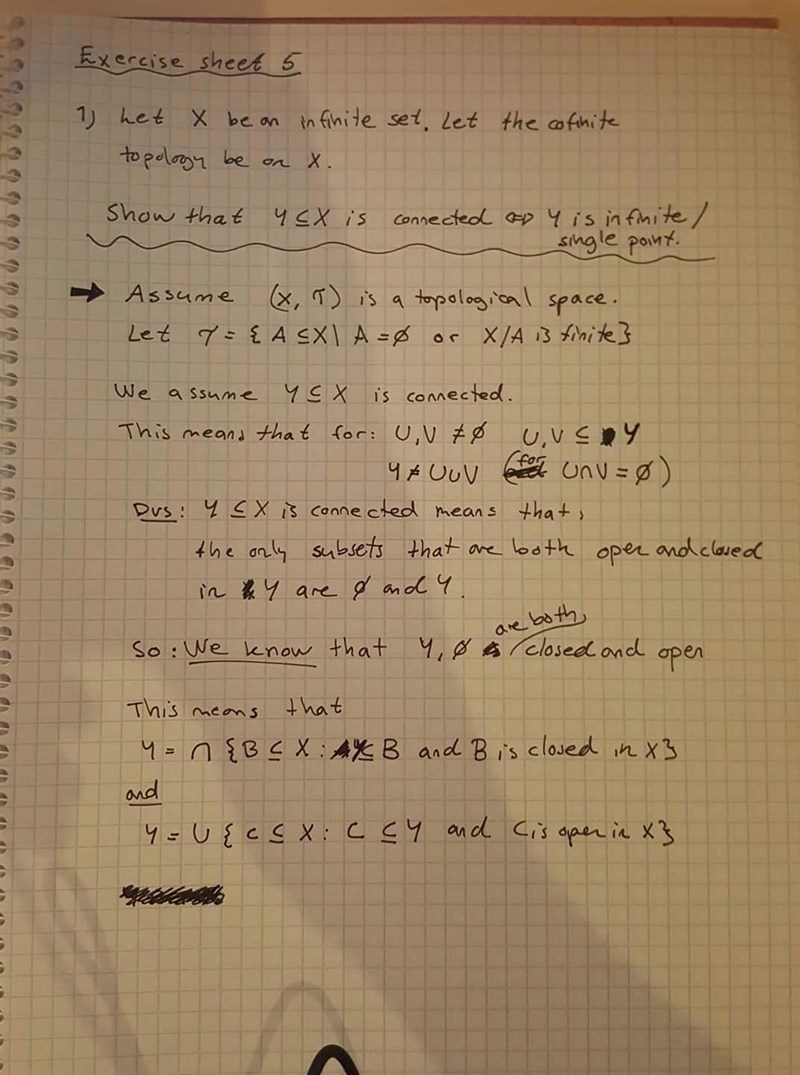 Exercise sheet 5
1) Let X be an infinite set. Let the cofinite
topology be on X.
Show that Y ⊆ X is connected ⇔ Y is infinite /
single point.
→ Assume (X, τ) is a topological space.
Let τ = { A ⊆ X | A = ∅ or X/A is finite }
We assume Y ⊆ X is connected.
This means that for: U, V ≠ ∅ U, V ⊆ Y
Y ≠ U ∪ V (for U ∩ V = ∅)
Dvs: Y ⊆ X is connected means that,
the only subsets that are both open and closed
in Y are ∅ and Y.
So: We know that Y, ∅ are both closed and open
This means that
Y = ∩ { B ⊆ X : Y ⊆ B and B is closed in X }
and
Y = ∪ { C ⊆ X : C ⊆ Y and C is open in X }